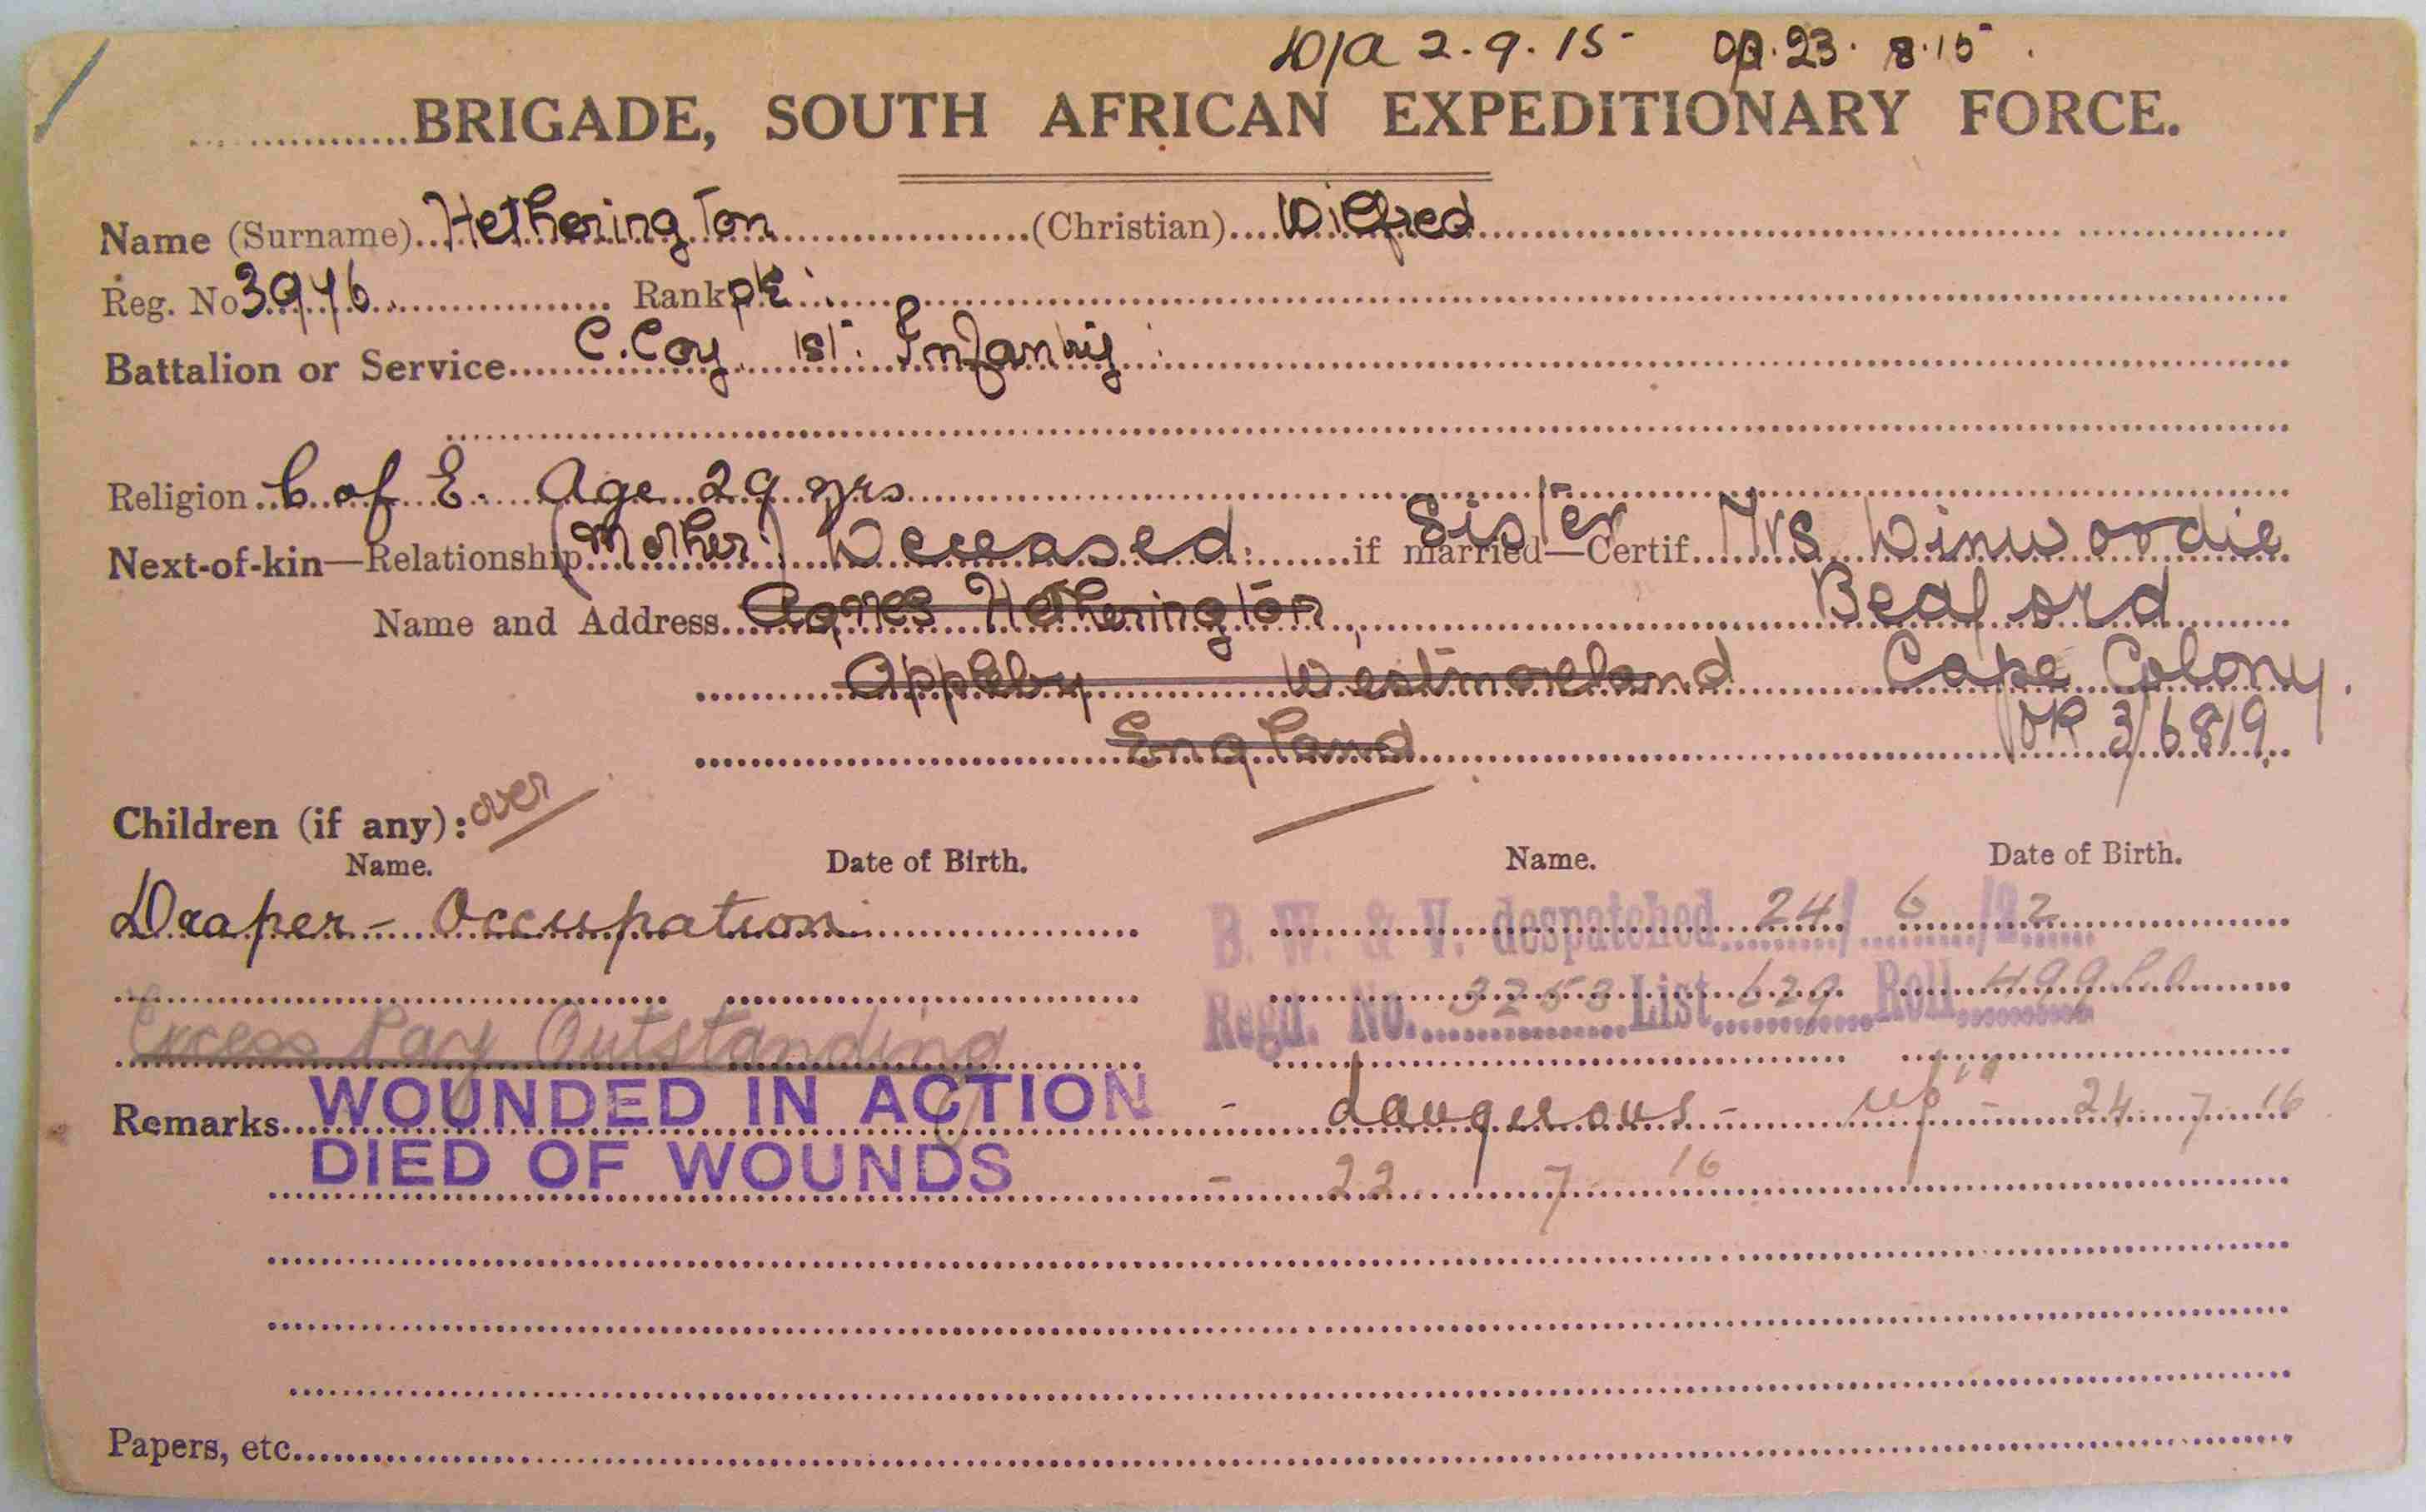 D/a 2.9.15 Op. 23.8.15.
BRIGADE, SOUTH AFRICAN EXPEDITIONARY FORCE.
Name (Surname) Hetherington (Christian) Wilfred
Reg. No 3946 Rank pte
Battalion or Service C. Coy 1st. Infantry
Religion C of E. Age 29 yrs
Next-of-kin—Relationship (Mother) Deceased if married—Certif. Sister Mrs Winwoodie
Name and Address Agnes Hetherington, Beaford
Appleby Westmoreland Cape Colony.
England OR 3/6819
Children (if any): over
Name. Date of Birth. Name. Date of Birth.
Draper - Occupation B. W. & V. despatched 24/6/22
Regd. No. 3253 List 629 Roll 499
Excess Pay Outstanding
Remarks WOUNDED IN ACTION - dangerous - 24 7 16
DIED OF WOUNDS - 22 7 16
Papers, etc.